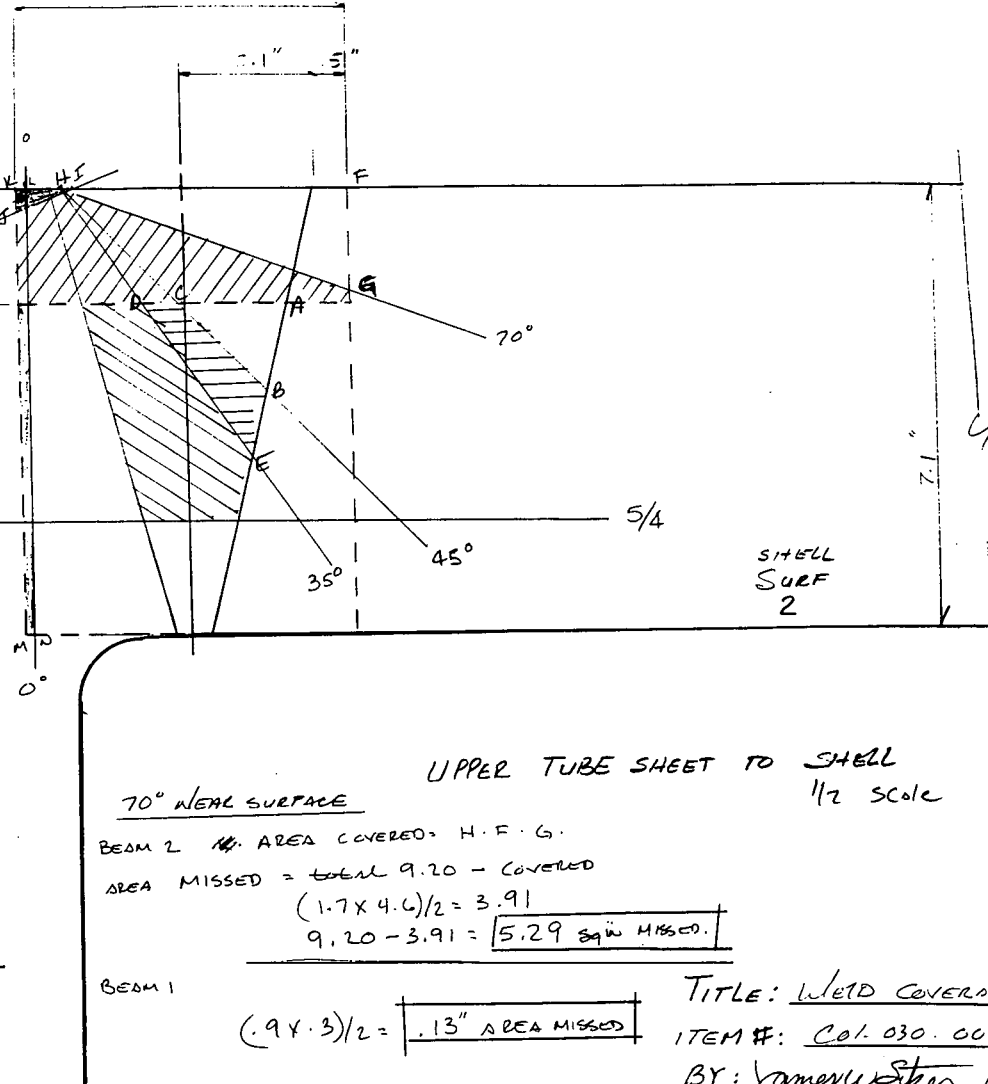 .1" .5"
O
K L H I F
J
G
D C A
70°
B
E
7.1"
5/4
45°
35°
SHELL
SURF
2
M N
0°
UPPER TUBE SHEET TO SHELL
1/2 SCALE
70° NEAR SURFACE
BEAM 2 AREA COVERED = H.F.G.
AREA MISSED = total 9.20 - COVERED
(1.7 X 4.6)/2 = 3.91
9.20 - 3.91 = 5.29 sq in MISSED.
BEAM 1
(.9 X .3)/2 = .13" AREA MISSED
TITLE: WELD COVERA
ITEM #: C01.030.00
BY: